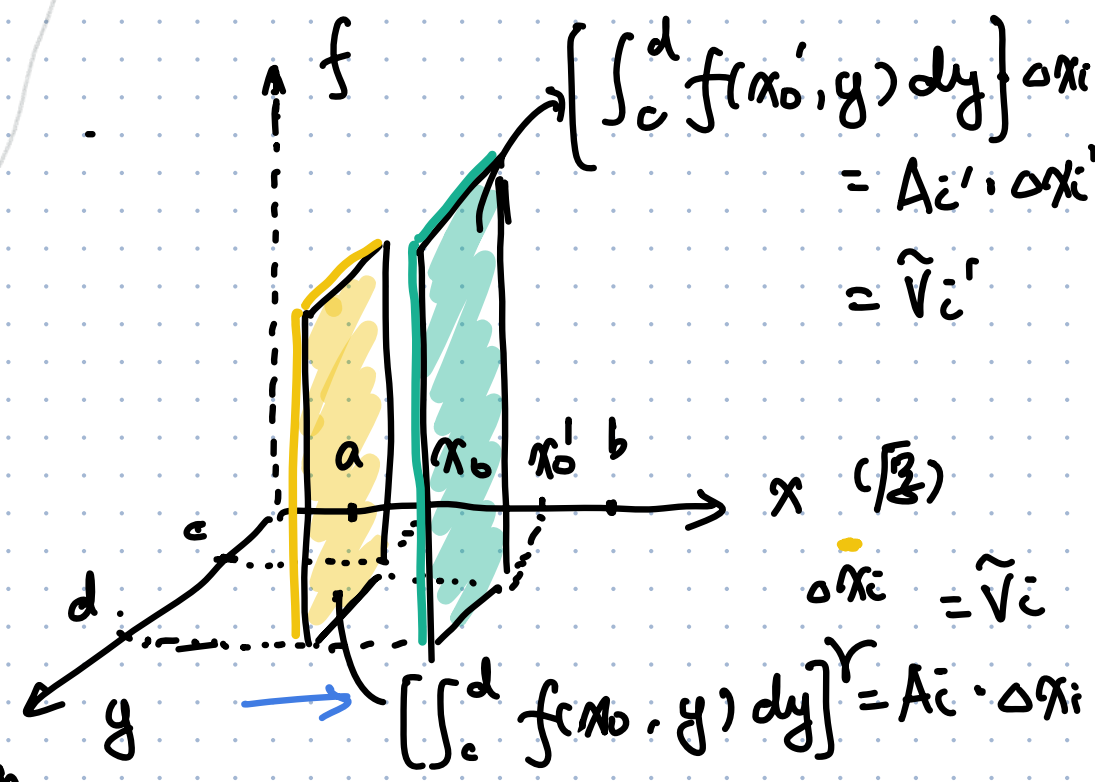 f
[∫_c^d f(x₀', y) dy] Δxi
= Ai' · Δxi'
= Ṽi'
a x₀ x₀' b
x
c
d
y
Δxi = Ṽi
[∫_c^d f(x₀, y) dy] = Ai · Δxi